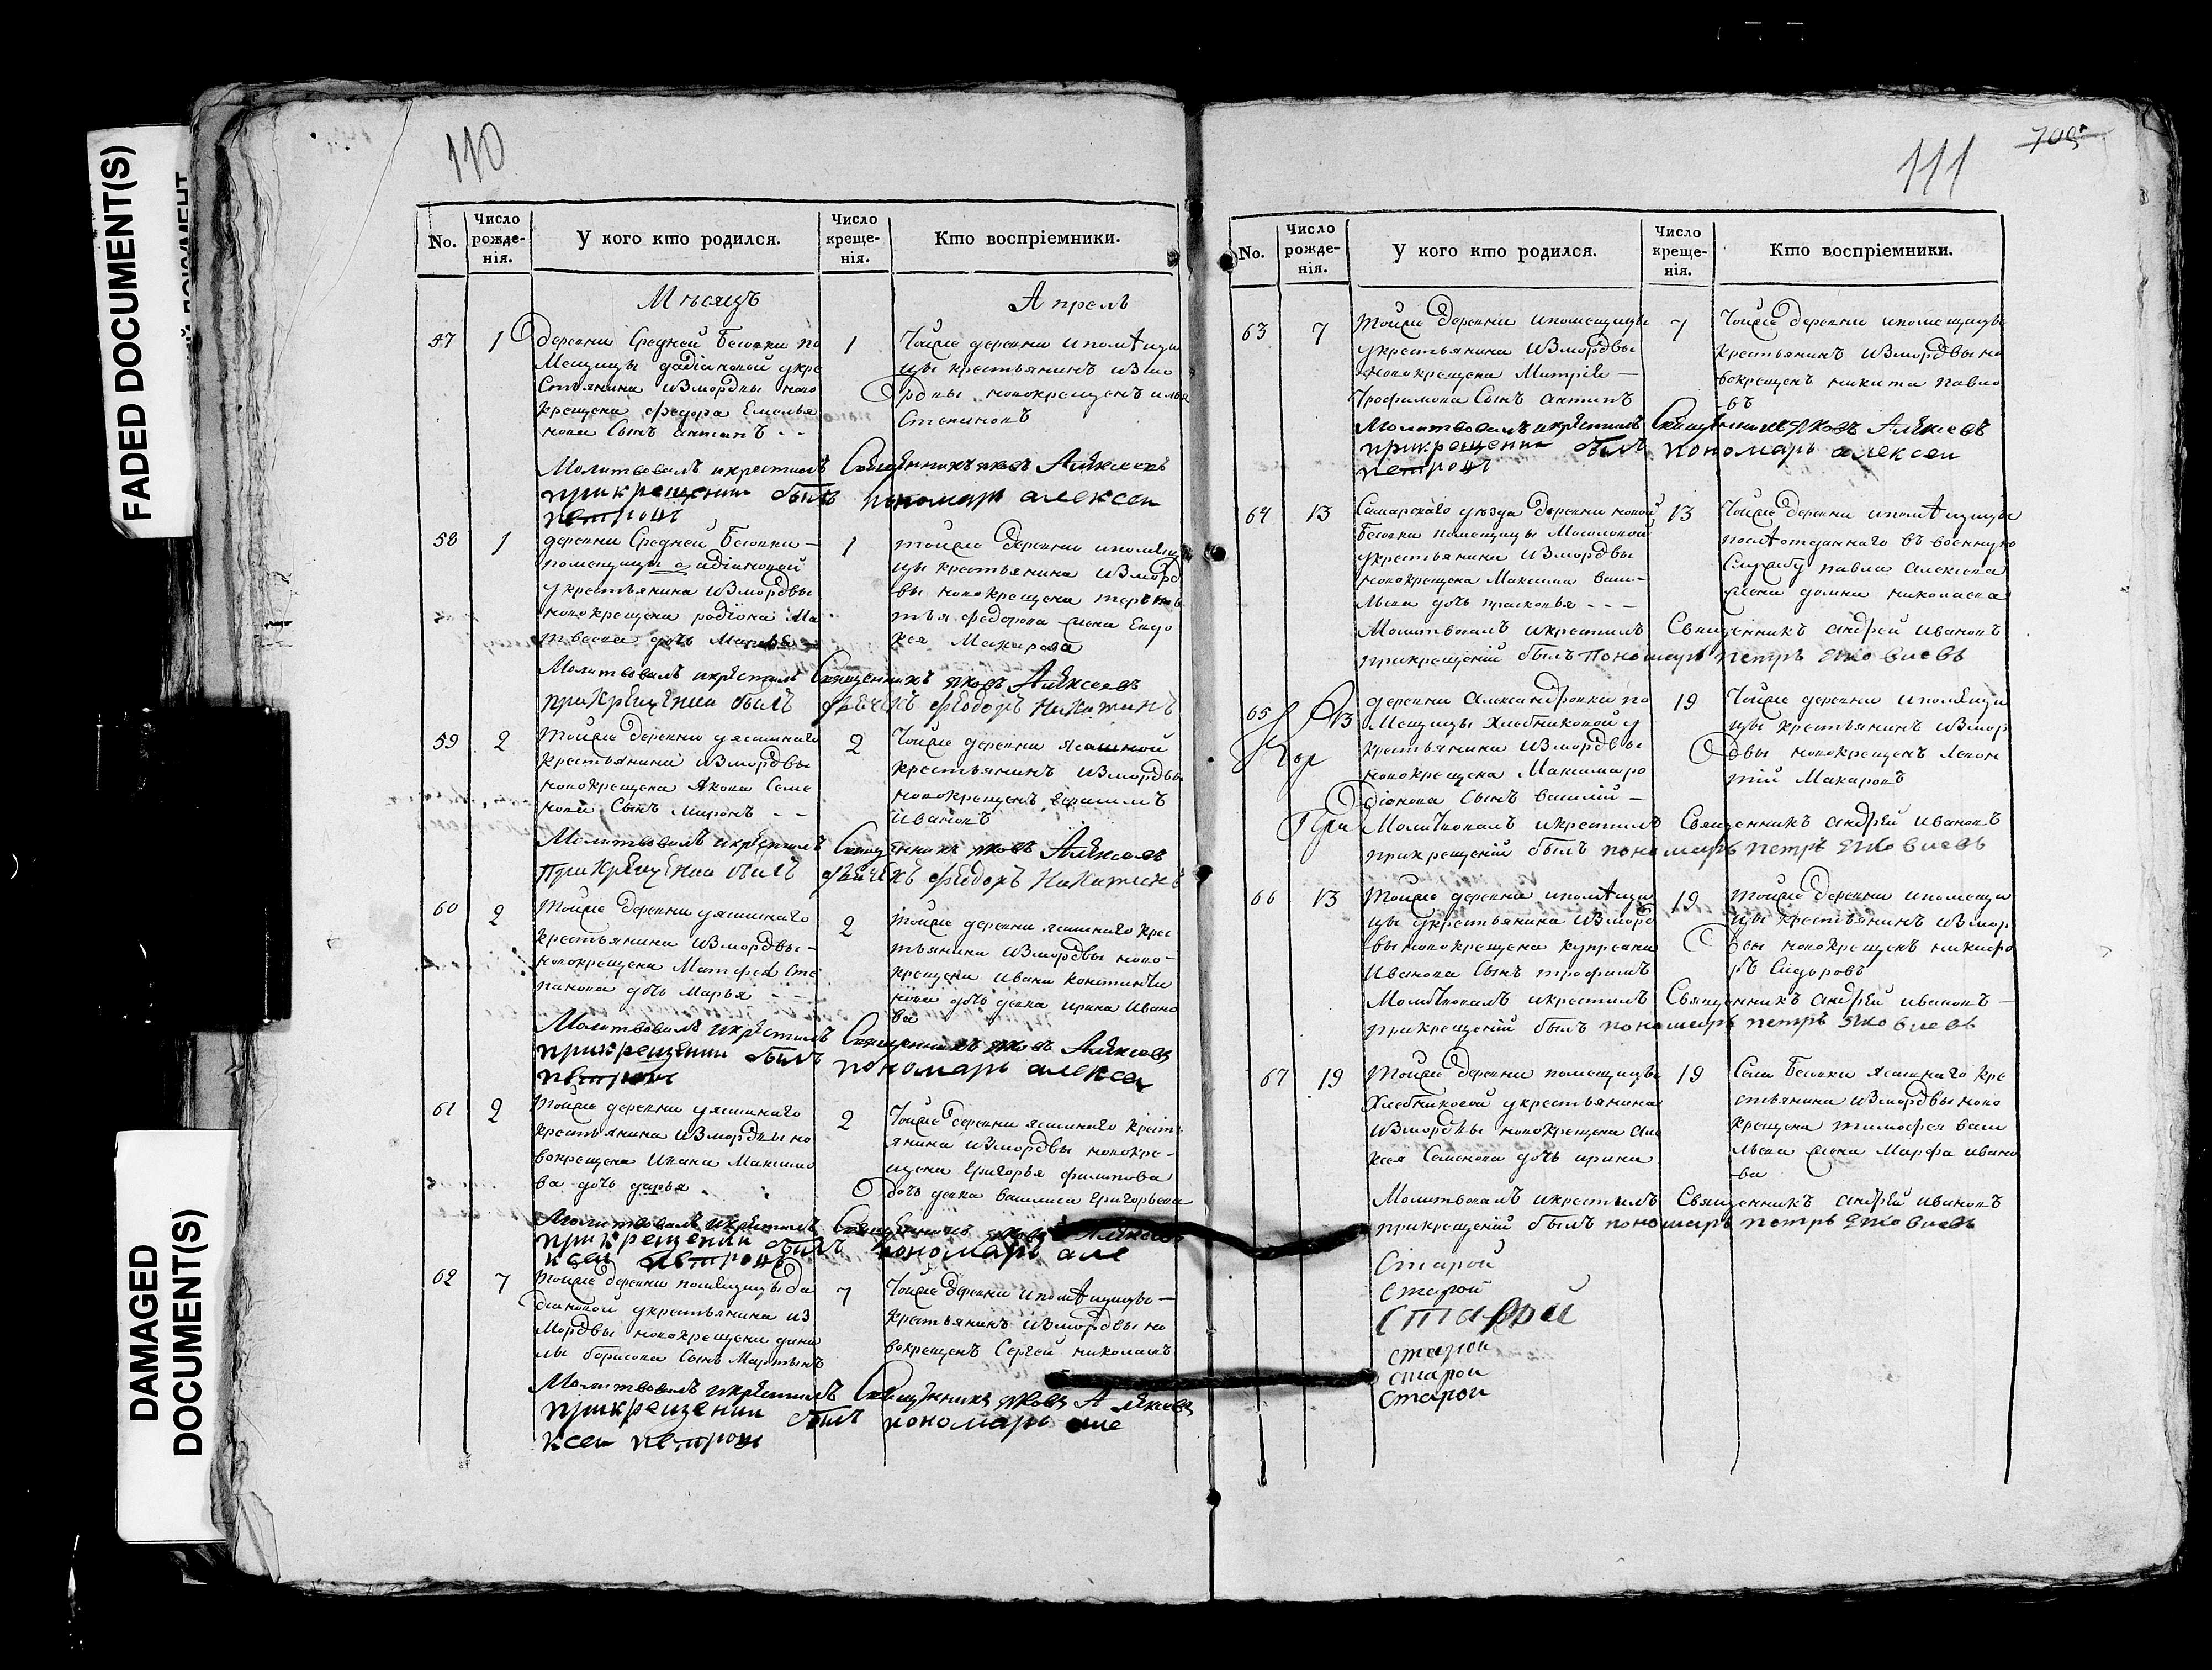 FADED DOCUMENT(S)
DAMAGED
DOCUMENT(S)
110
No.
Число рожде-нія.
У кого кто родился.
Число креще-нія.
Кто воспріемники.
Мѣсяцъ
Апрель
57
1
деревни Средней Бесовки по
мещицы фадiановой укре
стьянина измордвы ново
крещена федора Емелья
нова Сынъ антипъ - -
1
Тойже деревни ипомѣщи
цы крестьянинъ измо
рдвы новокрещенъ илья
Степановъ
Молитвовалъ икрестилъ Священникъ яковъ Алѣксеевъ
прикрещении былъ пономарь алексеи
петровъ
58
1
деревни Средней Бесовки -
помещицы фадiановой
укрестьянина измордвы
новокрещена родiона Ма
твеева дочь Матрена
1
тойже деревни ипомещи
цы крестьянина измор
вы новокрещена
тья федорова жена Евдо
кея Макарова
Молитвовалъ икрестилъ Священникъ яковъ Алѣксеевъ
прикрещении былъ дьячекъ фѣодоръ Никитинъ
59
2
Тойже деревни уясашнаго
крестьянина измордвы
новокрещена Якова Семе
нова Сынъ миронъ - -
2
Тойже деревни ясашной
крестьянинъ измордвы
новокрещенъ герасимъ
ивановъ
Молитвовалъ икрестилъ Священникъ яковъ Алѣксеевъ
при крещении былъ дьячекъ фѣодоръ Никитинъ
60
2
Тойже деревни уясашнаго
крестьянина измордвы -
новокрещена Матфея Сте
панова дочь Марья - -
2
тойже деревни ясашнаго крес
тьянина измордвы ново-
крещена ивана константи
нова дочь девка ирина ивано
ва
Молитвовалъ икрестилъ Священникъ яковъ Алѣксеевъ
прикрещении былъ пономарь алексеи
петровъ
61
2
тойже деревни уясашнаго
крестьянина измордвы но
вокрещена Ивана Максимо
ва дочь дарья
2
Тойже деревни ясашнаго кресть
янина измордвы новокре-
щена григорья филипова
дочь девка василиса григорьева
Молитвовалъ икрестилъ Священникъ яковъ Алѣксеевъ
прикрещении былъ пономарь але
ксеи петровъ
62
7
тойже деревни помещицы фа
дiановой укрестьянина из
мордвы новокрещена дани
лы борисова Сынъ Мартынъ
7
Тойже деревни ипомѣщицы -
крестьянинъ измордвы но
вокрещенъ Сергей николаевъ
Молитвовалъ икрестилъ Священникъ яковъ Алѣксеевъ
прикрещении былъ пономарь але
ксеи петровъ
111
705
No.
Число рожде-нія.
У кого кто родился.
Число креще-нія.
Кто воспріемники.
63
7
тойже деревни ипомещицы
укрестьянина измордвы
новокрещена Митрiя -
Трофимова Сынъ антипъ
7
Тойже деревни ипомещицы
крестьянинъ измордвы но
вокрещенъ никита павло
въ
Молитвовалъ икрестилъ Священникъ яковъ Алѣксеевъ
прикрещении былъ пономарь алексеи
петровъ
64
13
Самарскаго уѣзда деревни новой
Бесовки помещицы Мосоловой
укрестьянина измордвы
новокрещена Максима васи-
льева дочь прасковья - - -
13
Тойже деревни ипомѣщицы
послѣ отданнаго въ военную
службу павла алексеева
жена домна николаева
Молитвовалъ икрестилъ Священникъ андрей ивановъ
прикрещенiй былъ пономарь петръ яковлевъ
65
13
деревни Александровки по
мещицы Хлебниковой у
крестьянина измордвы
новокрещена Максима ро
дiонова Сынъ василiй -
19
Тойже деревни ипомещи
цы крестьянинъ измор
двы новокрещенъ леон
тiй Макаровъ
При
Молитвовалъ икрестилъ Священникъ андрей ивановъ
прикрещенiй былъ пономарь петръ яковлевъ
66
13
Тойже деревни ипомѣщи
цы укрестьянина изморд
вы новокрещена купреяна
Иванова Сынъ трофимъ
19
тойже деревни ипомещи
цы крестьянинъ измор
двы новокрещенъ никифо
ръ Сидоровъ
Молитвовалъ икрестилъ Священникъ андрей ивановъ -
прикрещенiй былъ пономарь петръ яковлевъ
67
19
Тойже деревни помещицы
Хлебниковой укрестьянина
измордвы новокрещена але
ксея Семенова дочь ирина
19
Села Бесовки ясашнаго кре
стьянина измордвы ново
крещена тимофея васи
льева жена Марфа ивано
ва
Молитвовалъ икрестилъ Священникъ андрей ивановъ
прикрещенiй былъ пономарь петръ яковлевъ
Старой
Старой
Старой
старой
старой
Старой